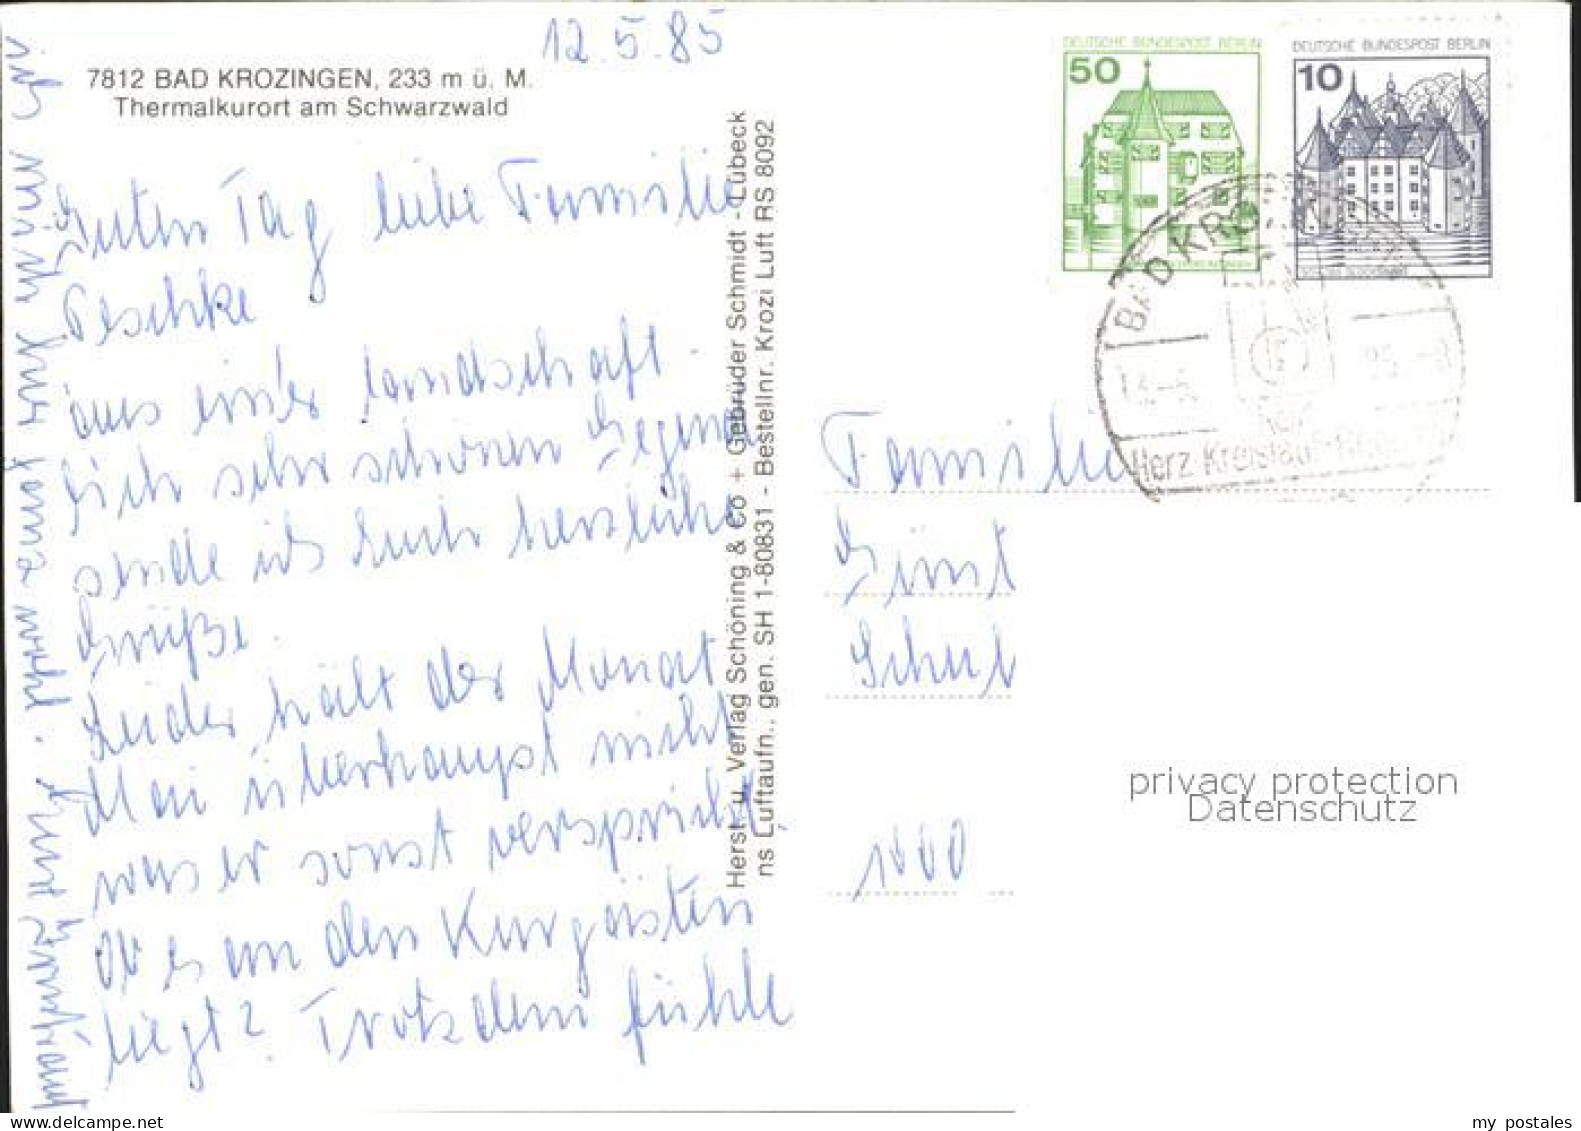 12.5.85
7812 BAD KROZINGEN, 233 m ü. M.
Thermalkurort am Schwarzwald
Guten Tag liebe Familie
Peschke
aus einer landschaft-
lich sehr schönen Gegend
sende ich Euch herzliche
Grüße.
Leider hält der Monat
Mai überhaupt nicht
was er sonst verspricht.
Ob es an den Kurgästen
liegt? Trotzdem fühle
ich mich hier ganz wohl.
Herst. u. Verlag Schöning & Co + Gebrüder Schmidt - Lübeck
ns Luftaufn., gen. SH 1-80831 - Bestellnr. Krozi Luft RS 8092
DEUTSCHE BUNDESPOST BERLIN
50
DEUTSCHE BUNDESPOST BERLIN
10
BAD KRO
Herz Kreislauf
Familie
Schul
1000
privacy protection
Datenschutz
my postales